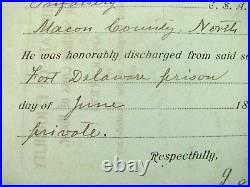 Infantry C.S.A.
Macon County, North
He was honorably discharged from said s
Fort Delaware prison
day of June 18
private.
Respectfully,